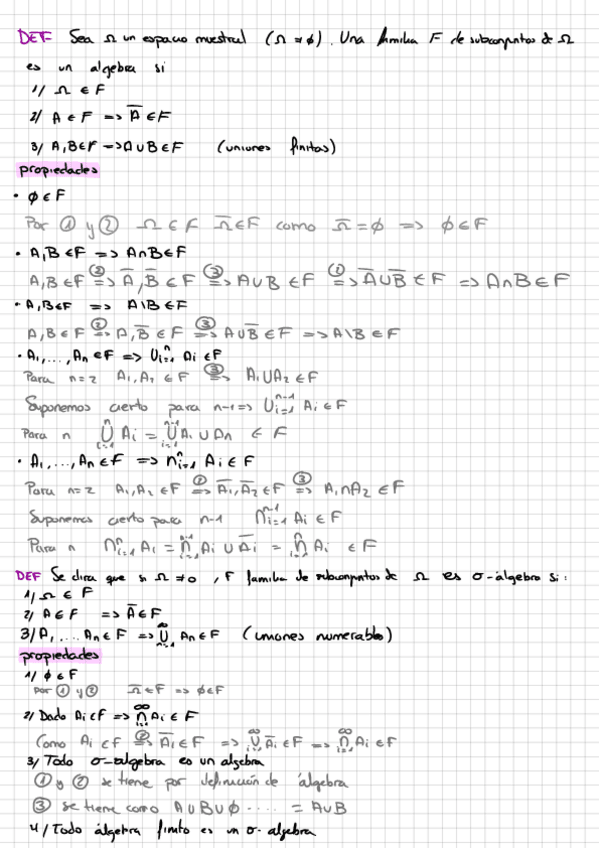 DEF Sea Ω un espacio muestral (Ω ≠ ∅). Una familia F de subconjuntos de Ω
es un algebra si
1/ Ω ∈ F
2/ A ∈ F => A̅ ∈ F
3/ A,B∈F => A∪B ∈ F (uniones finitas)
propiedades
• ∅ ∈ F
Por ① y ② Ω ∈ F Ω̅ ∈ F como Ω̅ = ∅ => ∅ ∈ F
• A,B ∈ F => A∩B ∈ F
A,B ∈ F ②=> A̅,B̅ ∈ F ③=> A∪B ∈ F ①=> A̅∪B̅ ∈ F => A∩B ∈ F
• A,B∈F => A\B ∈ F
A,B ∈ F ②=> A,B̅ ∈ F ③=> A∪B̅ ∈ F => A\B ∈ F
• A₁,...,An ∈ F => ∪ⁿᵢ₌₁ Ai ∈ F
Para n=2 A₁,A₂ ∈ F ③=> A₁∪A₂ ∈ F
Suponemos cierto para n-1 => ∪ⁿ⁻¹ᵢ₌₁ Ai ∈ F
Para n ∪ⁿᵢ₌₁ Ai = ∪ⁿ⁻¹ᵢ₌₁ Ai ∪ An ∈ F
• A₁,...,An ∈ F => ∩ⁿᵢ₌₁ Ai ∈ F
Para n=2 A₁,A₂ ∈ F ②=> A̅₁,A̅₂ ∈ F ③=> A₁∩A₂ ∈ F
Suponemos cierto para n-1 ∩ⁿ⁻¹ᵢ₌₁ Ai ∈ F
Para n ∩ⁿᵢ₌₁ Ai = ∩ⁿ⁻¹ᵢ₌₁ Ai ∪ A̅i = ∩ⁿᵢ₌₁ Ai ∈ F
DEF Se dira que si Ω ≠ 0 , F familia de subconjuntos de Ω es σ-álgebra si:
1/ Ω ∈ F
2/ A ∈ F => A̅ ∈ F
3/ A₁,...An ∈ F => ∪^∞ᵢ₌₁ An ∈ F (uniones numerables)
propiedades
1/ ∅ ∈ F
por ① y ② Ω̅ ∈ F => ∅ ∈ F
2/ Dado Ai ⊂ F => ∩^∞ᵢ₌₁ Ai ∈ F
Como Ai ⊂ F ②=> A̅i ∈ F => ∪^∞ᵢ₌₁ A̅i ∈ F => ∩^∞ᵢ₌₁ Ai ∈ F
3/ Todo σ-algebra es un algebra
① y ② se tiene por definición de álgebra
③ se tiene como A∪B∪∅ ..... = A∪B
4/ Todo álgebra finito es un σ-algebra